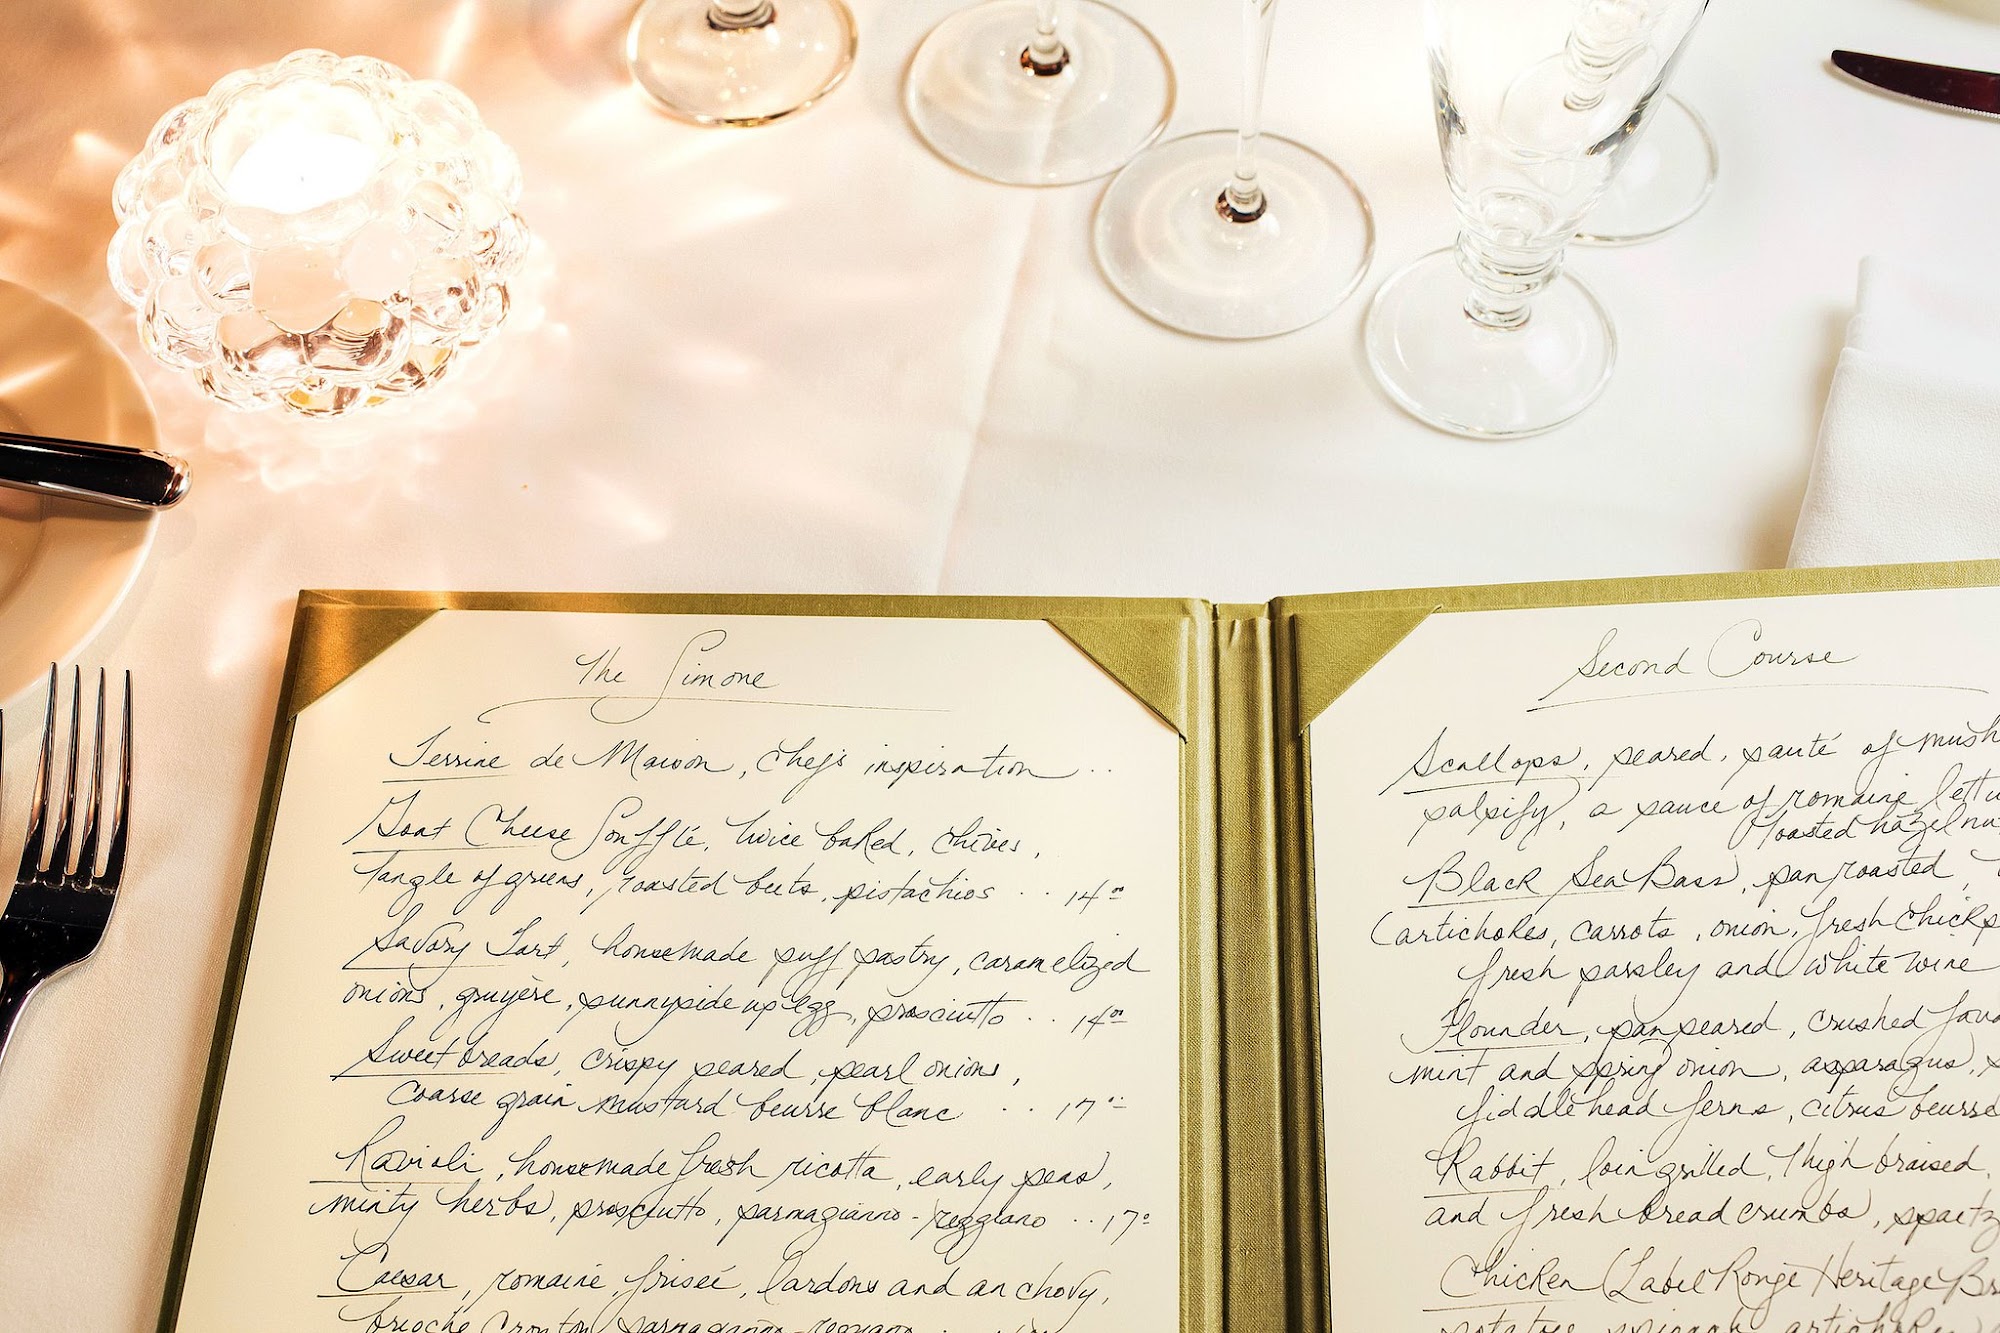 The Simone
Terrine de Maison, chef's inspiration ..
Goat Cheese Soufflé, twice baked, chives,
tangle of greens, roasted beets, pistachios .. 14 00
Savory Tart, homemade puff pastry, caramelized
onions, gruyère, sunnyside up egg, prosciutto .. 14 00
Sweetbreads, crispy seared, pearl onions,
coarse grain mustard beurre blanc .. 17 00
Ravioli, homemade fresh ricotta, early peas,
minty herbs, prosciutto, parmagianno-reggiano .. 17 00
Caesar, romaine, friseé, lardons and anchovy,
brioche crouton, parmagianno-reggiano
Second Course
Scallops, seared, sauté of mush
salsify, a sauce of romaine lettu
toasted hazelnu
Black Sea Bass, pan roasted,
(artichokes, carrots, onion, fresh chickp
fresh parsley and white wine
Flounder, pan seared, crushed fava
mint and spring onion, asparagus,
fiddlehead ferns, citrus beurre
Rabbit, loin grilled, thigh braised,
and fresh bread crumbs, spaetz
Chicken (Label Ronge Heritage Br